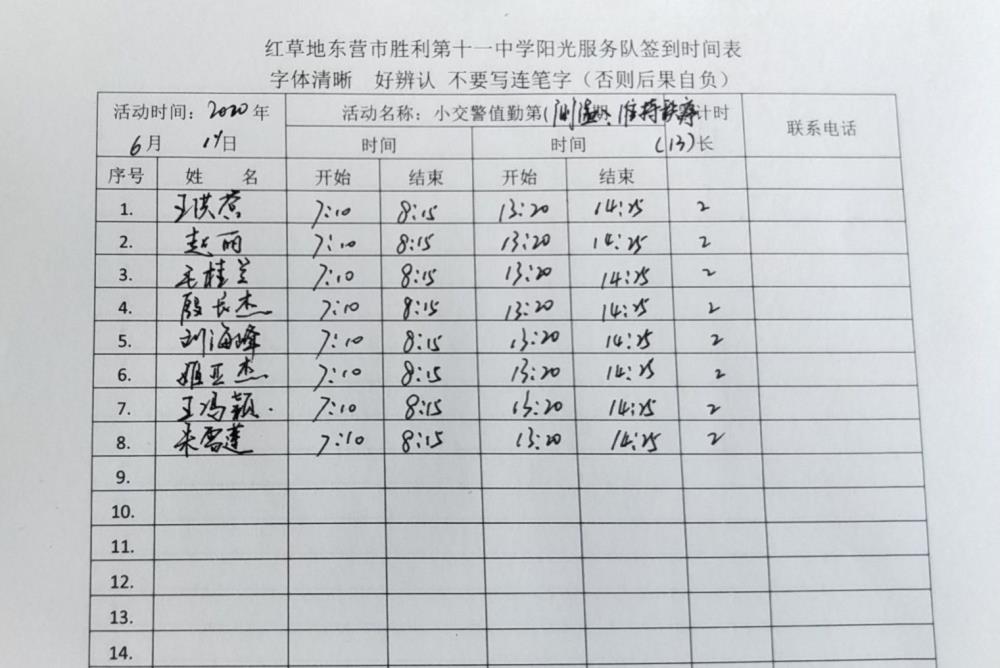 红草地东营市胜利第十一中学阳光服务队签到时间表
字体清晰 好辨认 不要写连笔字（否则后果自负）
活动时间：2020年 活动名称：小交警值勤第（测温、维持秩序 计时 联系电话
6月 日 时间 时间 (13)长
序号 姓 名 开始 结束 开始 结束
1. 王洪营 7:10 8:15 13:20 14:25 2
2. 赵丽 7:10 8:15 13:20 14:25 2
3. 毛桂兰 7:10 8:15 13:20 14:25 2
4. 殷长杰 7:10 8:15 13:20 14:25 2
5. 刘海峰 7:10 8:15 13:20 14:25 2
6. 姬亚杰 7:10 8:15 13:20 14:25 2
7. 王冯颖 7:10 8:15 13:20 14:25 2
8. 朱雪莲 7:10 8:15 13:20 14:25 2
9.
10.
11.
12.
13.
14.